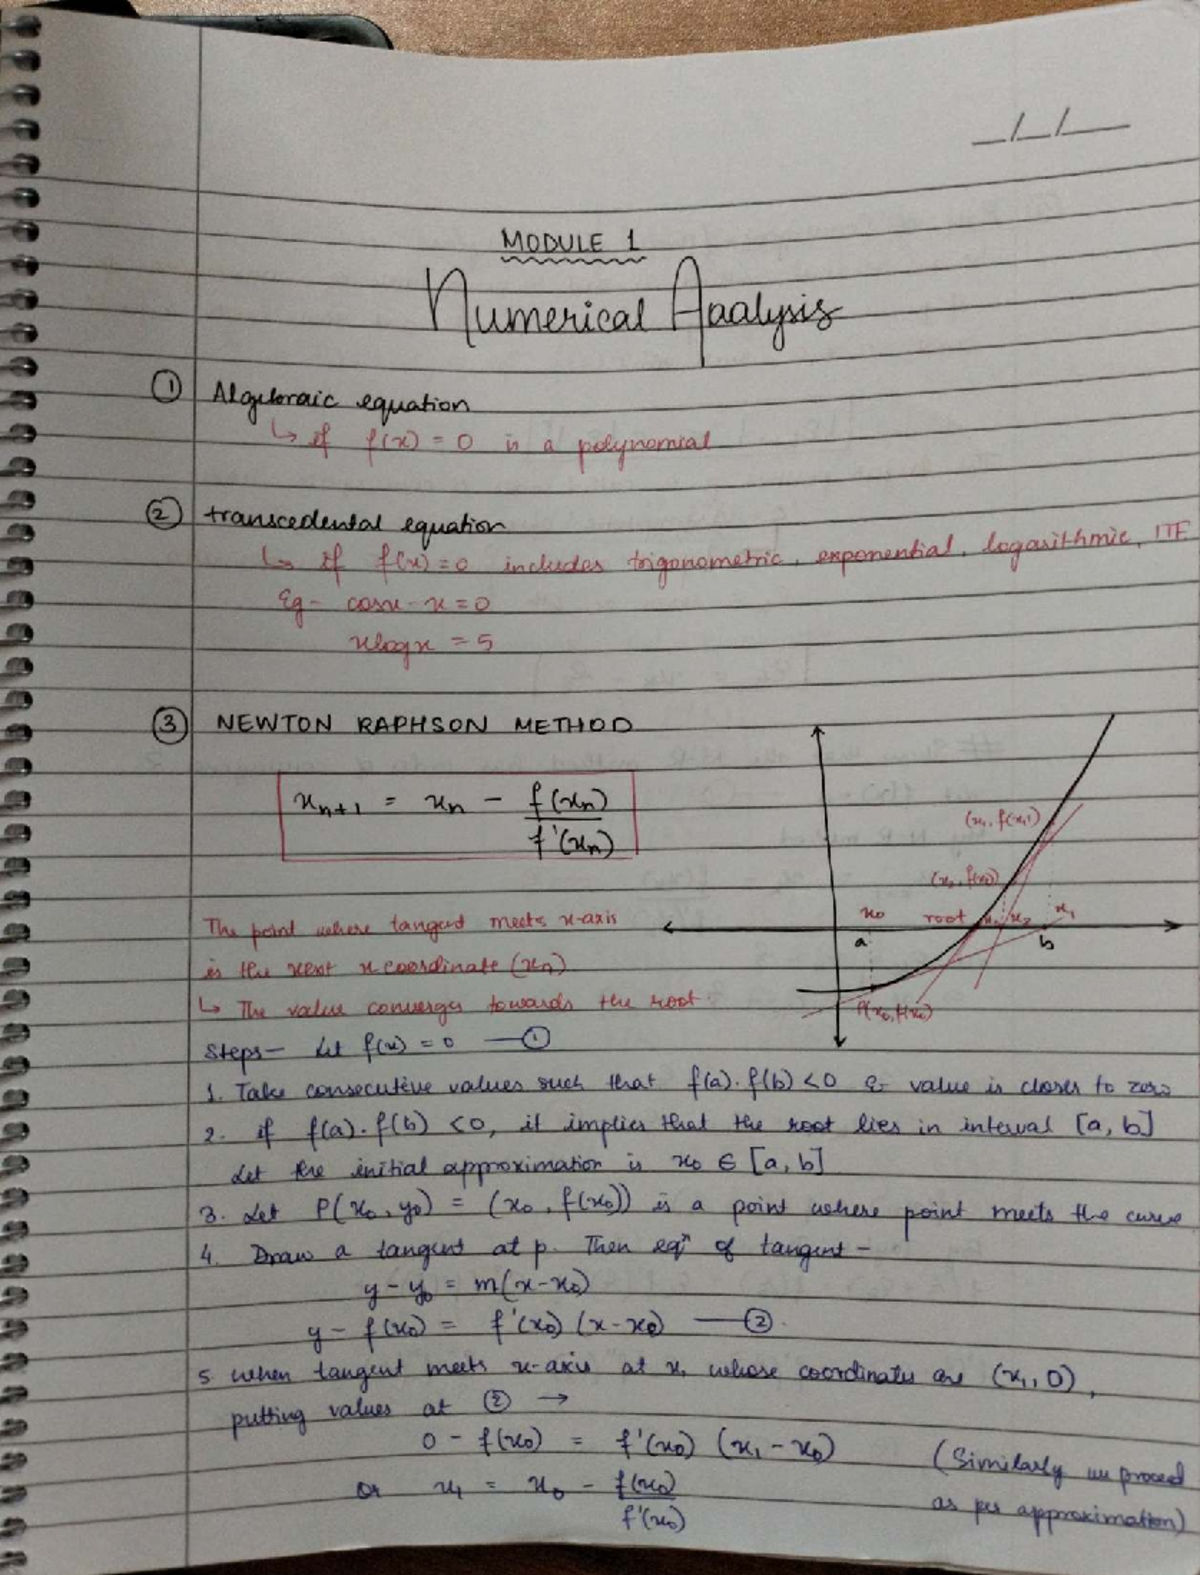 _/_/__
MODULE 1
Numerical Analysis
① Algebraic equation
↳ if f(x) = 0 is a polynomial
② transcedental equation
↳ if f(x) = 0 includes trigonometric, exponential, logarithmic, ITF
Eg- cosx - x = 0
xlogx = 5
③ NEWTON RAPHSON METHOD
xₙ₊₁ = xₙ - f(xₙ)/f'(xₙ)
(x₁, f(x₁))
(x₂, f(x₂))
x₀ root x₃ x₂ x₁
a b
P(x₀, f(x₀))
The point where tangent meets x-axis
is the next x coordinate (xₙ)
↳ The value converges towards the root.
Steps- Let f(x) = 0 —①
1. Take consecutive values such that f(a).f(b) < 0 & value is closer to zero
2. if f(a).f(b) < 0, it implies that the root lies in interval [a, b]
Let the initial approximation is x₀ ∈ [a, b]
3. Let P(x₀, y₀) = (x₀, f(x₀)) is a point where point meets the curve
4. Draw a tangent at p. Then eqⁿ of tangent -
y - y₀ = m(x - x₀)
y - f(x₀) = f'(x₀) (x - x₀) —②.
5. When tangent meets x-axis at x₁ whose coordinates are (x₁, 0),
putting values at ② →
0 - f(x₀) = f'(x₀) (x₁ - x₀)
or x₁ = x₀ - f(x₀)/f'(x₀)
(Similarly we proceed
as per approximation)